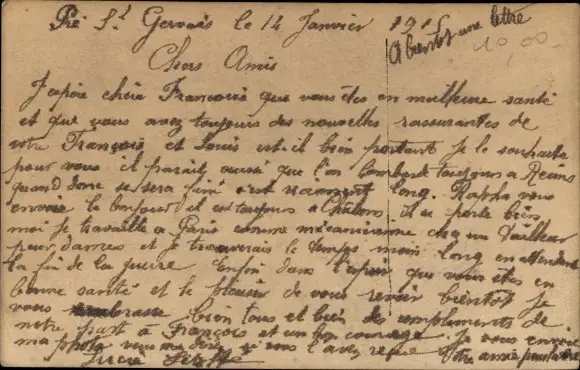 Pré St Gervais le 14 Janvier 1915
A bientot une lettre
10,00
Chers Amis
J'espère chère Françoise que vous êtes en meilleure santé
et que vous avez toujours des nouvelles rassurantes de
votre François et Louis est-il bien portant je le souhaite
pour vous il parait aussi que l'on bombarde toujours à Reims
quand donc se sera fini c'est vraiment long. Rapha vous
envoie le bonjour il est toujours à Châlons il se porte bien
moi je travaille à Paris comme mécanicienne chez un Tailleur
pour dames et je trouverais le temps moin long en attendant
la fin de la guerre. Enfin dans l'espoir que vous êtes en
bonne santé et le plaisir de vous revoir bientot je
vous embrasse bien tous et bien des compliments de
notre part à François et un bon courage je vous envoie
ma photo vous me direz si vous l'avez reçue Votre amie
Lucie